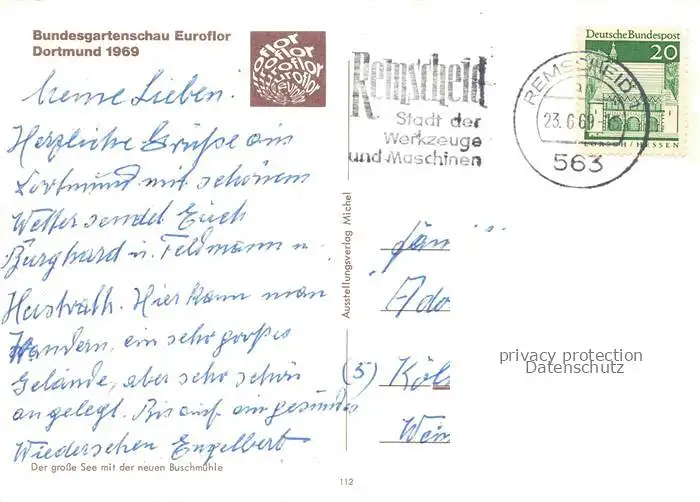 Bundesgartenschau Euroflor
Dortmund 1969
Meine Lieben!
Herzliche Grüße aus
Dortmund mit schönem
Wetter sendet Euch
Burghard u. Feldmann u.
Hier kann man
Wandern, ein sehr großes
Gelände, aber sehr schön
angelegt. Bis auf ein gesundes
Wiedersehen Engelbert
Der große See mit der neuen Buschmühle
Ausstellungsverlag Michel
112
Remscheid
Stadt der
Werkzeuge
und Maschinen
REMSCHEID 1
23.6.69
563
Deutsche Bundespost
20
LORSCH/HESSEN
(5) Köl
privacy protection
Datenschutz